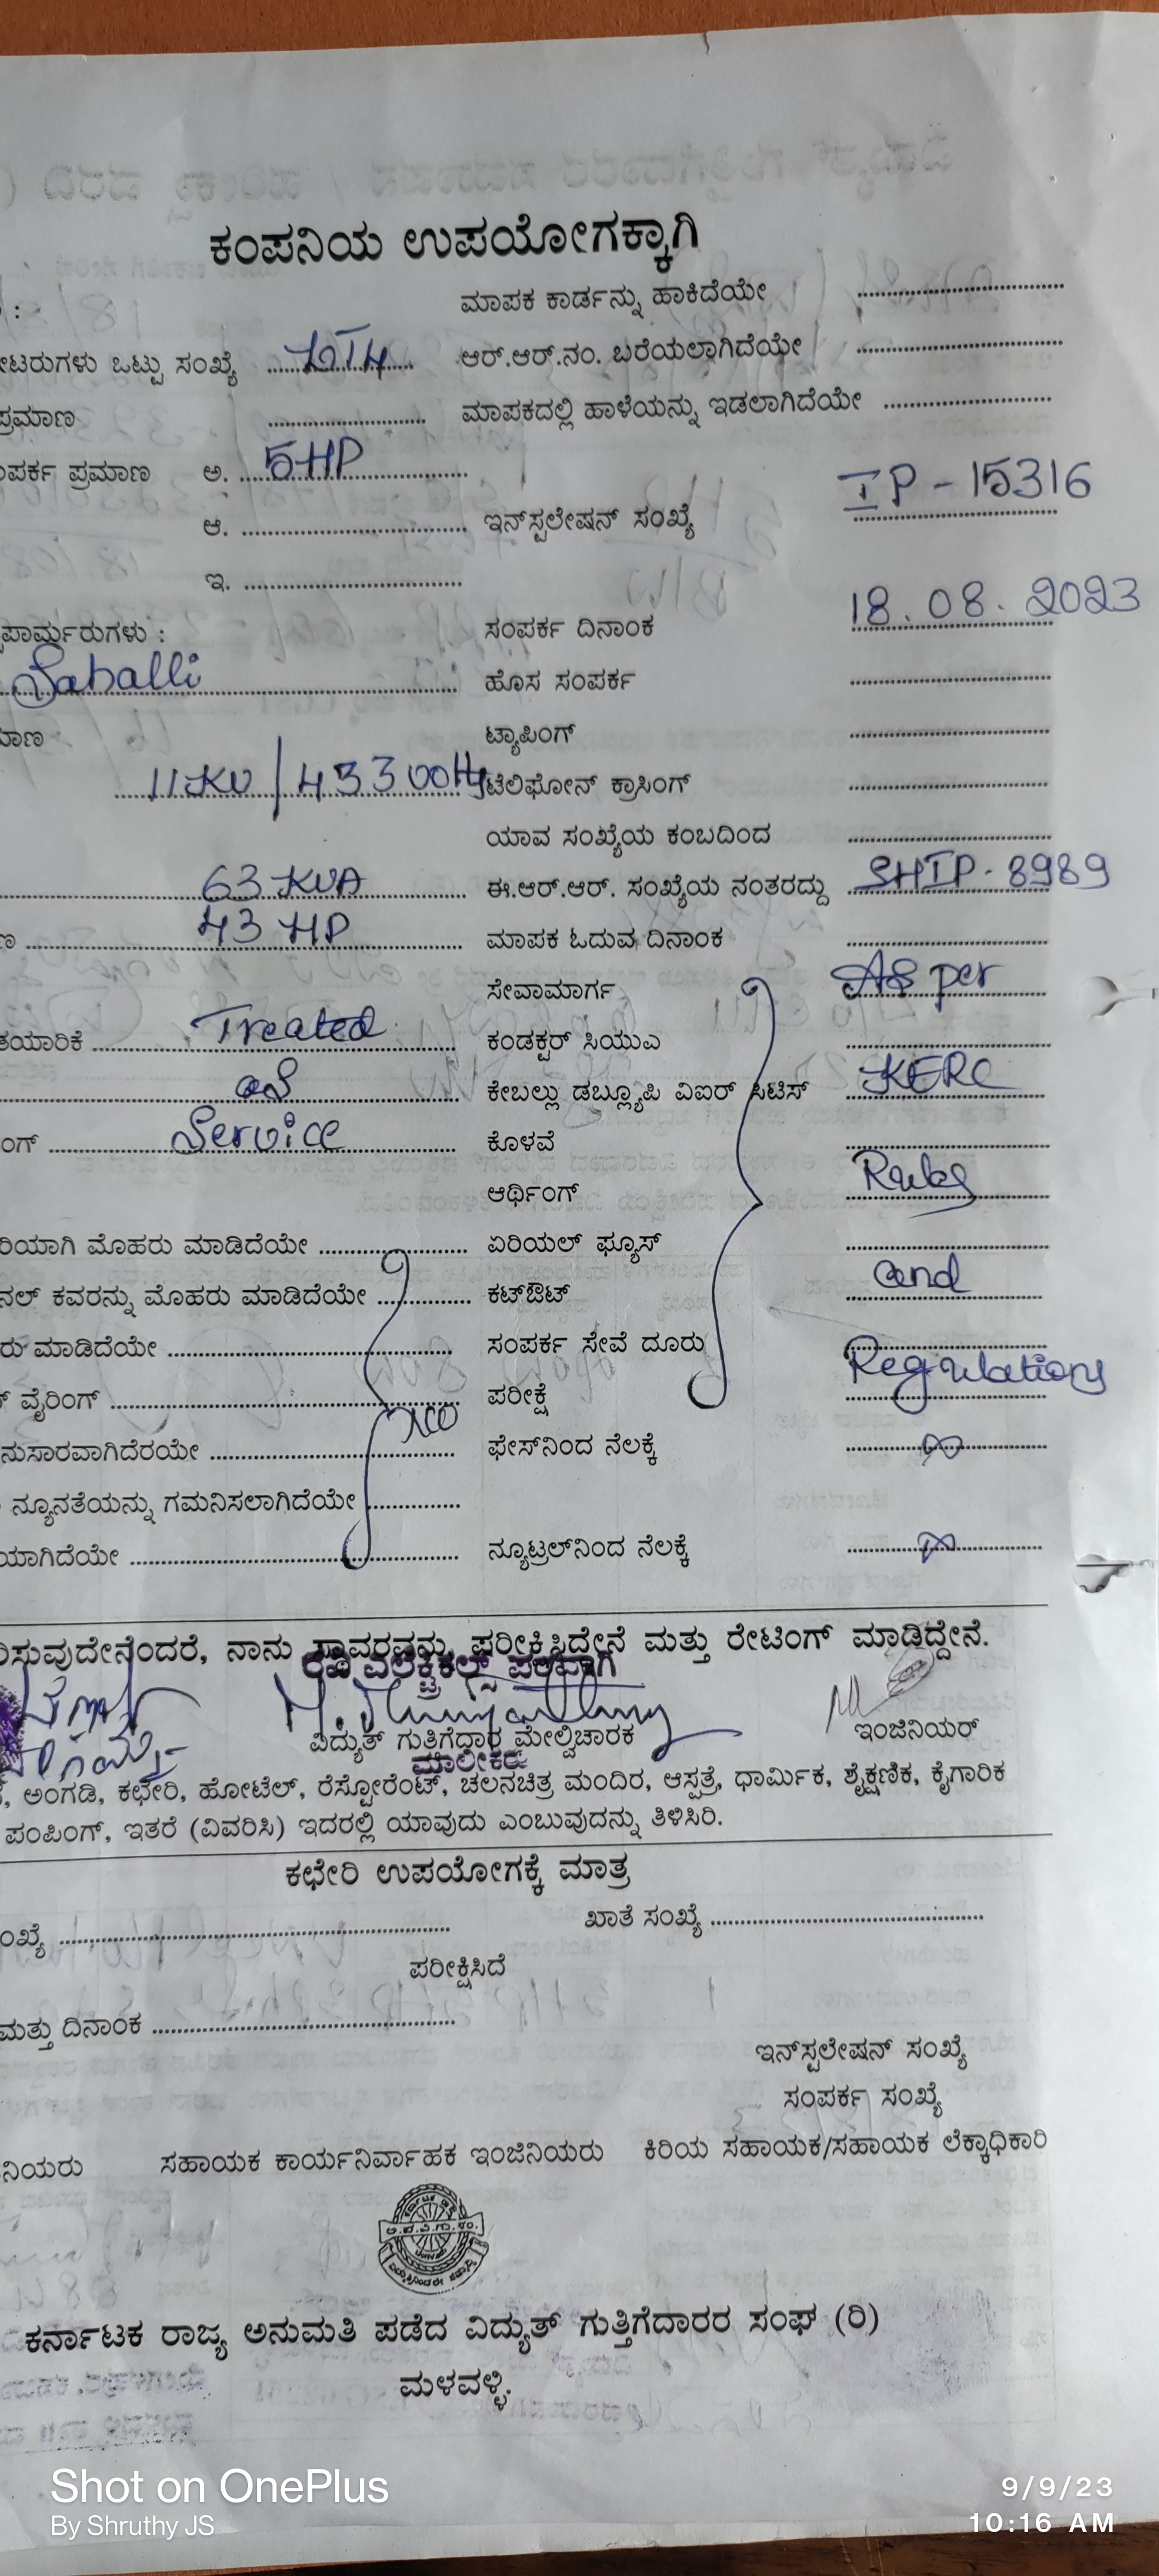 ಕಂಪನಿಯ ಉಪಯೋಗಕ್ಕಾಗಿ
ಮಾಪಕ ಕಾರ್ಡನ್ನು ಹಾಕಿದೆಯೇ
ಟರುಗಳು ಒಟ್ಟು ಸಂಖ್ಯೆ ಆರ್.ಆರ್.ನಂ. ಬರೆಯಲಾಗಿದೆಯೇ
ಪ್ರಮಾಣ ಮಾಪಕದಲ್ಲಿ ಹಾಳೆಯನ್ನು ಇಡಲಾಗಿದೆಯೇ
ಪರ್ಕ ಪ್ರಮಾಣ ಅ. 5HP
ಆ. ಇನ್‌ಸ್ಟಲೇಷನ್ ಸಂಖ್ಯೆ IP - 15316
ಇ.
ಪಾರ್ಮ್ರರುಗಳು : ಸಂಪರ್ಕ ದಿನಾಂಕ 18.08.2023
Sahalli ಹೊಸ ಸಂಪರ್ಕ
ಮಾಣ ಟ್ಯಾಪಿಂಗ್
11KV / 433 ಟೆಲಿಫೋನ್ ಕ್ರಾಸಿಂಗ್
ಯಾವ ಸಂಖ್ಯೆಯ ಕಂಬದಿಂದ
63 KVA ಈ.ಆರ್.ಆರ್. ಸಂಖ್ಯೆಯ ನಂತರದ್ದು SHIP - 8989
43 HP ಮಾಪಕ ಓದುವ ದಿನಾಂಕ
ಸೇವಾಮಾರ್ಗ As per
ತಯಾರಿಕೆ Treated ಕಂಡಕ್ಟರ್ ಸಿಯುಎ
as ಕೇಬಲ್ಲು ಡಬ್ಲ್ಯೂಪಿ ವಿಐರ್ ಸಿಟಿಸ್ KERC
ಂಗ್ Service ಕೊಳವೆ
ಆರ್ಥಿಂಗ್ Rules
ರಿಯಾಗಿ ಮೊಹರು ಮಾಡಿದೆಯೇ ಏರಿಯಲ್ ಫ್ಯೂಸ್
ನಲ್ ಕವರನ್ನು ಮೊಹರು ಮಾಡಿದೆಯೇ ಕಟ್‌ಔಟ್ and
ರು ಮಾಡಿದೆಯೇ ಸಂಪರ್ಕ ಸೇವೆ ದೂರು
ವೈರಿಂಗ್ ಪರೀಕ್ಷೆ Regulations
ನುಸಾರವಾಗಿದೆರಯೇ ಫೇಸ್‌ನಿಂದ ನೆಲಕ್ಕೆ
ನ್ಯೂನತೆಯನ್ನು ಗಮನಿಸಲಾಗಿದೆಯೇ
ಯಾಗಿದೆಯೇ ನ್ಯೂಟ್ರಲ್‌ನಿಂದ ನೆಲಕ್ಕೆ
ಸುವುದೇನೆಂದರೆ, ನಾನು ಸ್ಥಾವರವನ್ನು ಪರೀಕ್ಷಿಸಿದ್ದೇನೆ ಮತ್ತು ರೇಟಿಂಗ್ ಮಾಡಿದ್ದೇನೆ.
ರವಿ ಎಲೆಕ್ಟ್ರಿಕಲ್ಸ್ ಪರವಾಗಿ
ವಿದ್ಯುತ್ ಗುತ್ತಿಗೆದಾರ ಮೇಲ್ವಿಚಾರಕ ಇಂಜಿನಿಯರ್
ಮಾಲೀಕರು
ಅಂಗಡಿ, ಕಛೇರಿ, ಹೋಟೆಲ್, ರೆಸ್ಟೋರೆಂಟ್, ಚಲನಚಿತ್ರ ಮಂದಿರ, ಆಸ್ಪತ್ರೆ, ಧಾರ್ಮಿಕ, ಶೈಕ್ಷಣಿಕ, ಕೈಗಾರಿಕ
ಪಂಪಿಂಗ್, ಇತರೆ (ವಿವರಿಸಿ) ಇದರಲ್ಲಿ ಯಾವುದು ಎಂಬುವುದನ್ನು ತಿಳಿಸಿರಿ.
ಕಛೇರಿ ಉಪಯೋಗಕ್ಕೆ ಮಾತ್ರ
ಂಖ್ಯೆ ಖಾತೆ ಸಂಖ್ಯೆ
ಪರೀಕ್ಷಿಸಿದೆ
ಮತ್ತು ದಿನಾಂಕ
ಇನ್‌ಸ್ಟಲೇಷನ್ ಸಂಖ್ಯೆ
ಸಂಪರ್ಕ ಸಂಖ್ಯೆ
ನಿಯರು ಸಹಾಯಕ ಕಾರ್ಯನಿರ್ವಾಹಕ ಇಂಜಿನಿಯರು ಕಿರಿಯ ಸಹಾಯಕ/ಸಹಾಯಕ ಲೆಕ್ಕಾಧಿಕಾರಿ
ಕರ್ನಾಟಕ ರಾಜ್ಯ ಅನುಮತಿ ಪಡೆದ ವಿದ್ಯುತ್ ಗುತ್ತಿಗೆದಾರರ ಸಂಘ (ರಿ)
ಮಳವಳ್ಳಿ.
Shot on OnePlus
By Shruthy JS
9/9/23
10:16 AM